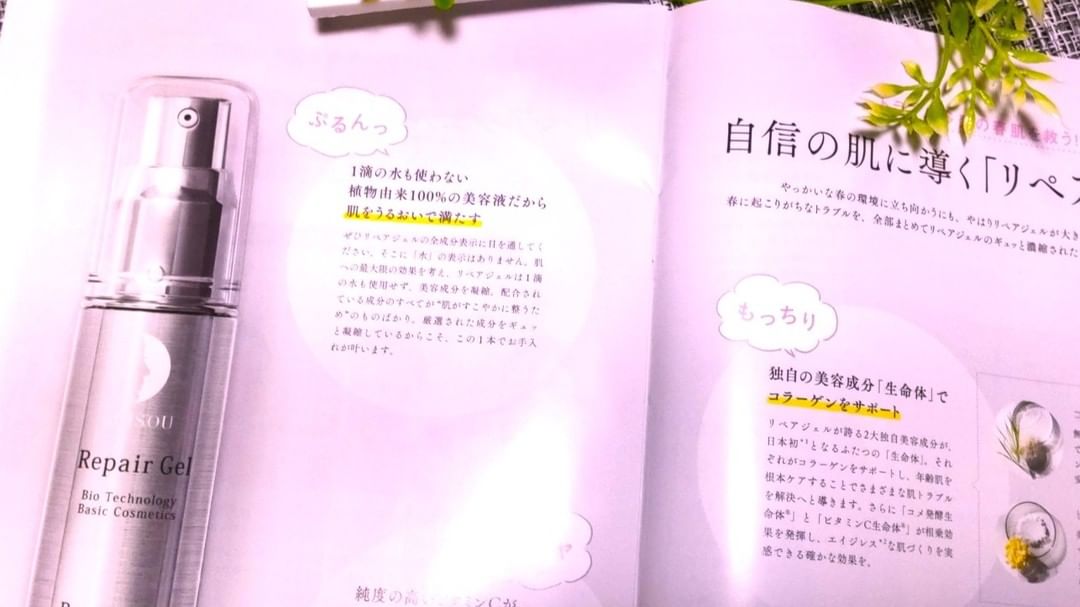 ぷるんっ
1滴の水も使わない
植物由来100%の美容液だから
肌をうるおいで満たす
ぜひリペアジェルの全成分表示に目を通してく
ださい。そこに「水」の表示はありません。肌
への最大限の効果を考え、リペアジェルは1滴
の水も使用せず、美容成分を凝縮。配合され
ている成分のすべてが“肌がすこやかに整うた
め”のものばかり。厳選された成分をギュッ
と凝縮しているからこそ、この1本でお手入
れが叶います。
SOU
Repair Gel
Bio Technology
Basic Cosmetics
純度の高いビタミンCが
の春肌を救う!
自信の肌に導く「リペア
やっかいな春の環境に立ち向かうにも、やはりリペアジェルが大き
春に起こりがちなトラブルを、全部まとめてリペアジェルのギュッと濃縮された
もっちり
独自の美容成分「生命体」で
コラーゲンをサポート
リペアジェルが誇る2大独自美容成分が、
日本初*1となるふたつの「生命体」。それ
ぞれがコラーゲンをサポートし、年齢肌を
根本ケアすることでさまざまな肌トラブル
を解決へと導きます。さらに「コメ発酵生
命体®」と「ビタミンC生命体®」が相乗効
果を発揮し、エイジレス*2な肌づくりを実
感できる確かな効果を。